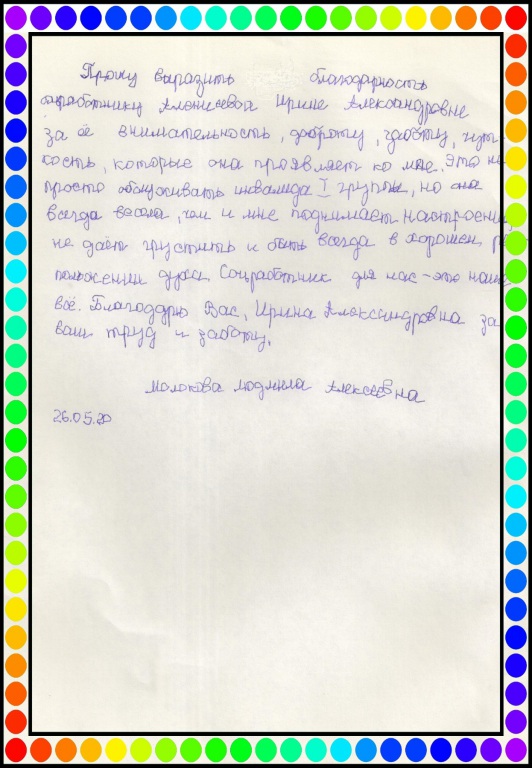 Прошу выразить благодарность
соцработнику Алексеевой Ирине Александровне
за её внимательность, доброту, заботу, чут
кость, которые она проявляет ко мне. Это не
просто обслуживать инвалида I группы, но она
всегда весела, чем и мне поднимает настроение
не даёт грустить и быть всегда в хорошем ра
положении духа. Соцработник для нас - это наше
всё. Благодарю Вас, Ирина Александровна за
ваш труд и заботу.
Молокова Людмила Алексеевна
26.05.20